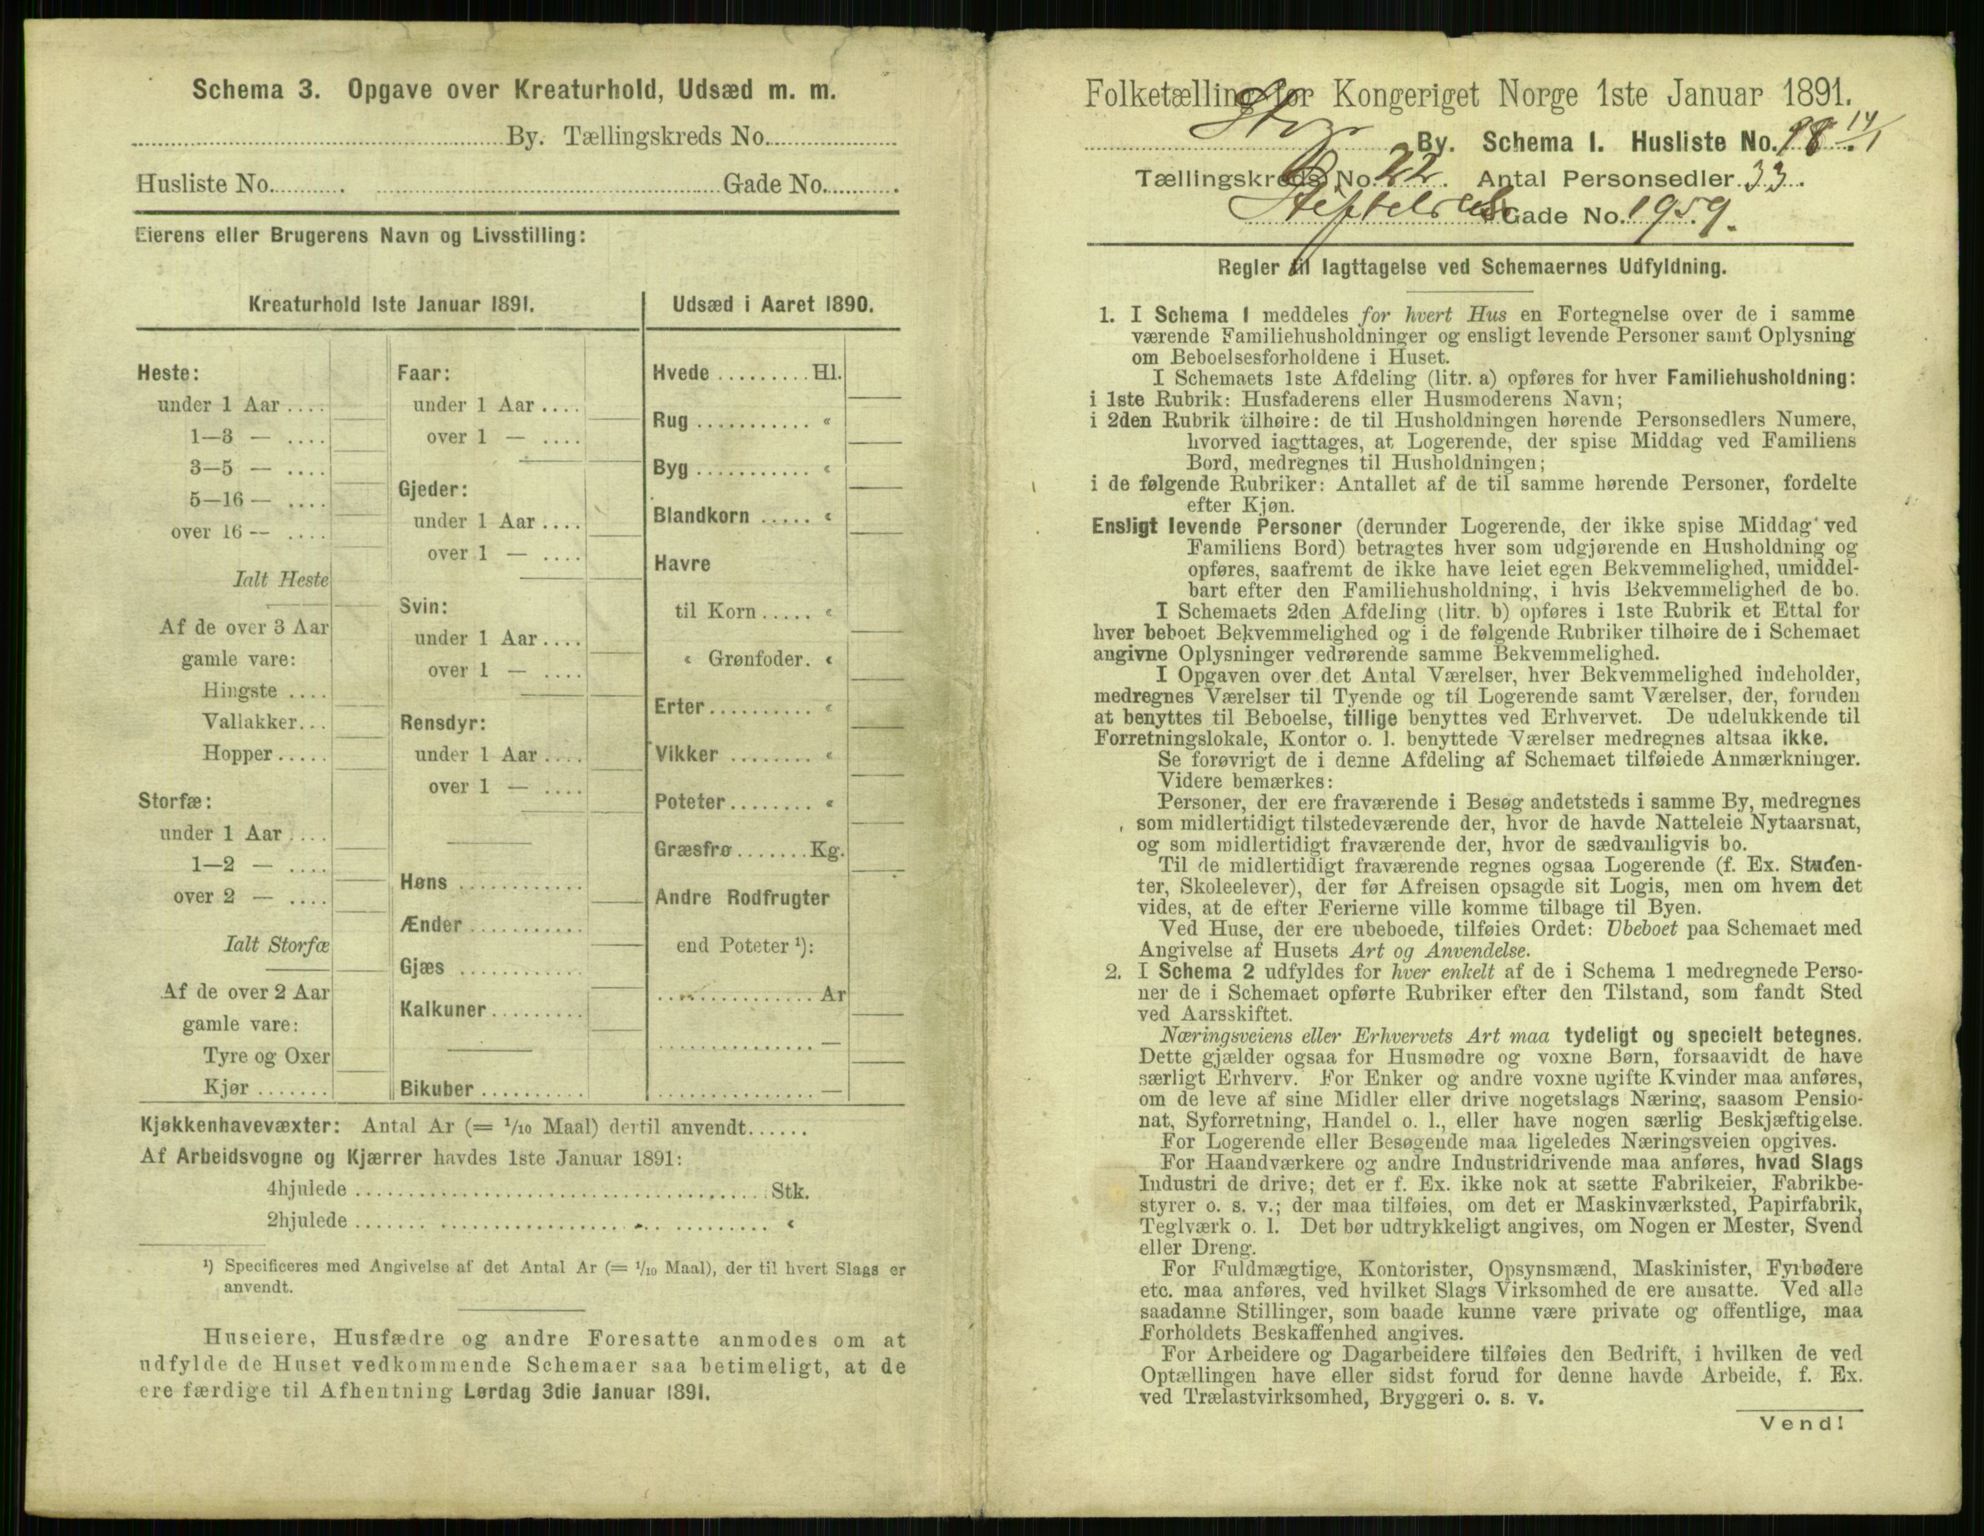 Schema 3. Opgave over Kreaturhold, Udsæd m. m.
By. Tællingskreds No.
Husliste No. Gade No.
Eierens eller Brugerens Navn og Livsstilling:
Kreaturhold 1ste Januar 1891.
Heste:
under 1 Aar
1—3 —
3—5 —
5—16 —
over 16 —
Ialt Heste
Af de over 3 Aar
gamle vare:
Hingste
Vallakker
Hopper
Storfæ:
under 1 Aar
1—2 —
over 2 —
Ialt Storfæ
Af de over 2 Aar
gamle vare:
Tyre og Oxer
Kjør
Faar:
under 1 Aar
over 1 —
Gjeder:
under 1 Aar
over 1 —
Svin:
under 1 Aar
over 1 —
Rensdyr:
under 1 Aar
over 1 —
Høns
Ænder
Gjæs
Kalkuner
Bikuber
Udsæd i Aaret 1890.
Hvede Hl.
Rug «
Byg «
Blandkorn «
Havre
til Korn «
« Grønfoder. «
Erter «
Vikker «
Poteter «
Græsfrø Kg.
Andre Rodfrugter
end Poteter ¹):
Ar
—
—
Kjøkkenhavevæxter: Antal Ar (= 1/10 Maal) dertil anvendt
Af Arbeidsvogne og Kjærrer havdes 1ste Januar 1891:
4hjulede Stk.
2hjulede «
¹) Specificeres med Angivelse af det Antal Ar (= 1/10 Maal), der til hvert Slags er
anvendt.
Huseiere, Husfædre og andre Foresatte anmodes om at
udfylde de Huset vedkommende Schemaer saa betimeligt, at de
ere færdige til Afhentning Lørdag 3die Januar 1891.
Folketælling for Kongeriget Norge 1ste Januar 1891.
By. Schema I. Husliste No. 98 14/1
Tællingskreds No. 22. Antal Personsedler 33.
Gade No. 1959.
Regler til Iagttagelse ved Schemaernes Udfyldning.
1. I Schema 1 meddeles for hvert Hus en Fortegnelse over de i samme
værende Familiehusholdninger og ensligt levende Personer samt Oplysning
om Beboelsesforholdene i Huset.
I Schemaets 1ste Afdeling (litr. a) opføres for hver Familiehusholdning:
i 1ste Rubrik: Husfaderens eller Husmoderens Navn;
i 2den Rubrik tilhøire: de til Husholdningen hørende Personsedlers Numere,
hvorved iagttages, at Logerende, der spise Middag ved Familiens
Bord, medregnes til Husholdningen;
i de følgende Rubriker: Antallet af de til samme hørende Personer, fordelte
efter Kjøn.
Ensligt levende Personer (derunder Logerende, der ikke spise Middag ved
Familiens Bord) betragtes hver som udgjørende en Husholdning og
opføres, saafremt de ikke have leiet egen Bekvemmelighed, umiddel-
bart efter den Familiehusholdning, i hvis Bekvemmelighed de bo.
I Schemaets 2den Afdeling (litr. b) opføres i 1ste Rubrik et Ettal for
hver beboet Bekvemmelighed og i de følgende Rubriker tilhøire de i Schemaet
angivne Oplysninger vedrørende samme Bekvemmelighed.
I Opgaven over det Antal Værelser, hver Bekvemmelighed indeholder,
medregnes Værelser til Tyende og til Logerende samt Værelser, der, foruden
at benyttes til Beboelse, tillige benyttes ved Erhvervet. De udelukkende til
Forretningslokale, Kontor o. l. benyttede Værelser medregnes altsaa ikke.
Se forøvrigt de i denne Afdeling af Schemaet tilføiede Anmærkninger.
Videre bemærkes:
Personer, der ere fraværende i Besøg andetsteds i samme By, medregnes
som midlertidigt tilstedeværende der, hvor de havde Natteleie Nytaarsnat,
og som midlertidigt fraværende der, hvor de sædvanligvis bo.
Til de midlertidigt fraværende regnes ogsaa Logerende (f. Ex. Studen-
ter, Skoleelever), der før Afreisen opsagde sit Logis, men om hvem det
vides, at de efter Ferierne ville komme tilbage til Byen.
Ved Huse, der ere ubeboede, tilføies Ordet: Ubeboet paa Schemaet med
Angivelse af Husets Art og Anvendelse.
2. I Schema 2 udfyldes for hver enkelt af de i Schema 1 medregnede Perso-
ner de i Schemaet opførte Rubriker efter den Tilstand, som fandt Sted
ved Aarsskiftet.
Næringsveiens eller Erhvervets Art maa tydeligt og specielt betegnes.
Dette gjælder ogsaa for Husmødre og voxne Børn, forsaavidt de have
særligt Erhverv. For Enker og andre voxne ugifte Kvinder maa anføres,
om de leve af sine Midler eller drive nogetslags Næring, saasom Pensio-
nat, Syforretning, Handel o. l., eller have nogen særlig Beskjæftigelse.
For Logerende eller Besøgende maa ligeledes Næringsveien opgives.
For Haandværkere og andre Industridrivende maa anføres, hvad Slags
Industri de drive; det er f. Ex. ikke nok at sætte Fabrikeier, Fabrikbe-
styrer o. s. v.; der maa tilføies, om det er Maskinværksted, Papirfabrik,
Teglværk o. l. Det bør udtrykkeligt angives, om Nogen er Mester, Svend
eller Dreng.
For Fuldmægtige, Kontorister, Opsynsmænd, Maskinister, Fyrbødere
etc. maa anføres, ved hvilket Slags Virksomhed de ere ansatte. Ved alle
saadanne Stillinger, som baade kunne være private og offentlige, maa
Forholdets Beskaffenhed angives.
For Arbeidere og Dagarbeidere tilføies den Bedrift, i hvilken de ved
Optællingen have eller sidst forud for denne havde Arbeide, f. Ex.
ved Trælastvirksomhed, Bryggeri o. s. v.
Vend!